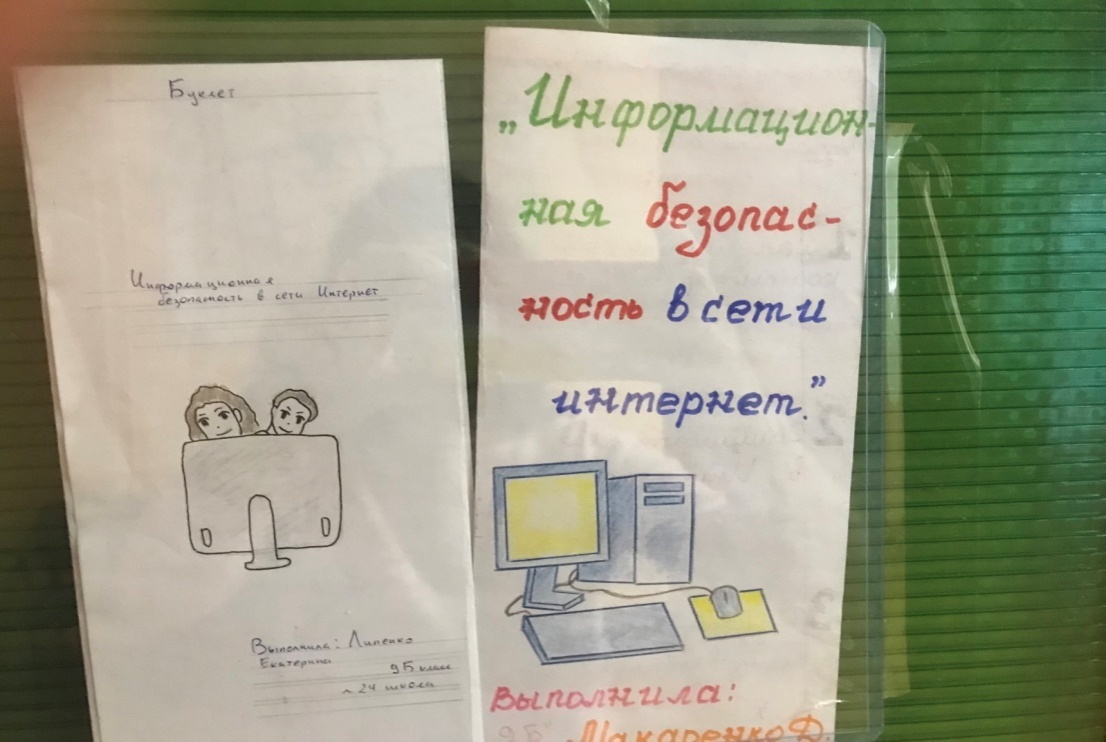 Буклет
Информационная
безопасность в сети Интернет
Выполнила: Липенко
Екатерина 9Б класс
24 школа
„Информацион-
ная безопас-
ность в сети
интернет."
Выполнила:
9Б Макаренко Д.